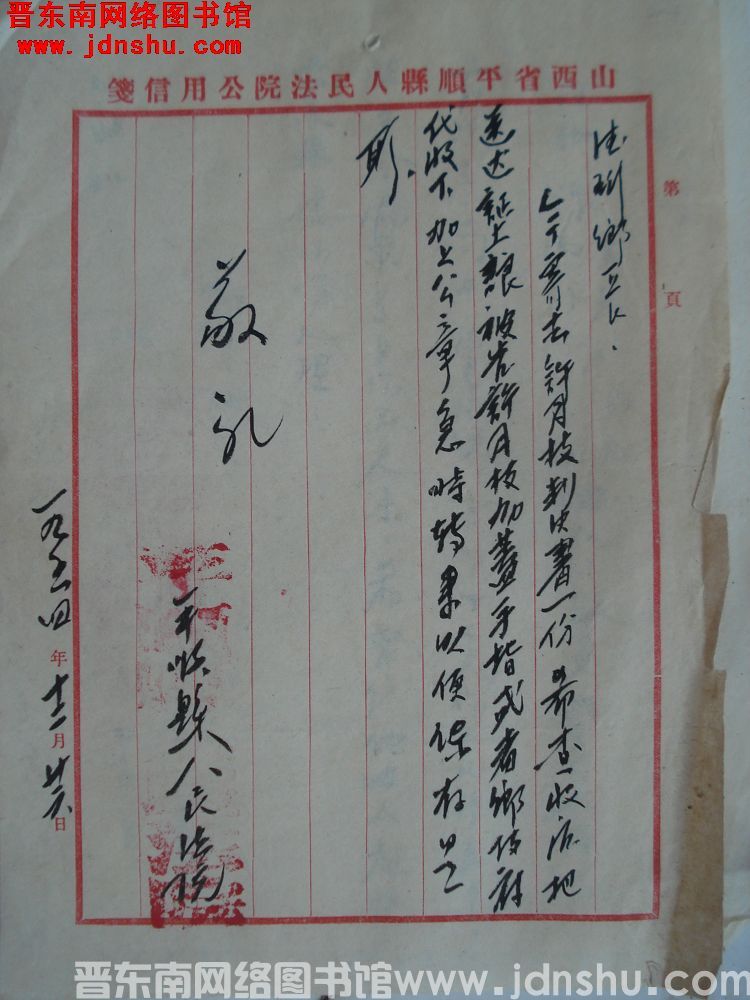 晋东南网络图书馆
www.jdnshu.com
山西省平順縣人民法院公用信箋
第 頁
鄉長.
今寄去許月枝判决書一份希查收后把
送达証上讓被告許月枝加蓋手指或者鄉政府
代收下加上公章急時转来以便保存是
盼.
敬礼
平順縣人民法院
一九五四年十二月廿六日
晋东南网络图书馆www.jdnshu.com